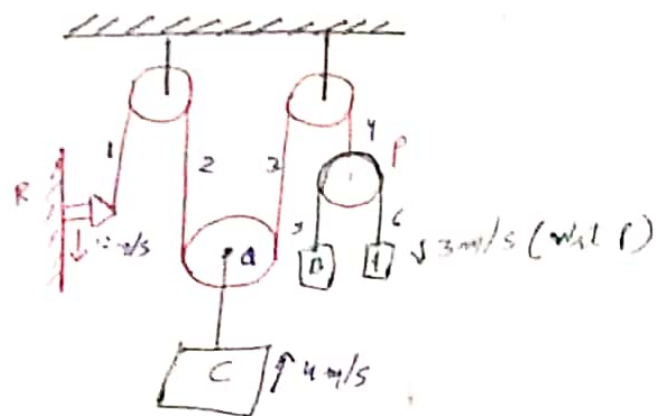 1
2
3
4
P
R
↓ 2 m/s
Q
5
6
B
A
↓ 3 m/s (w.r.t P)
C
↑ 4 m/s